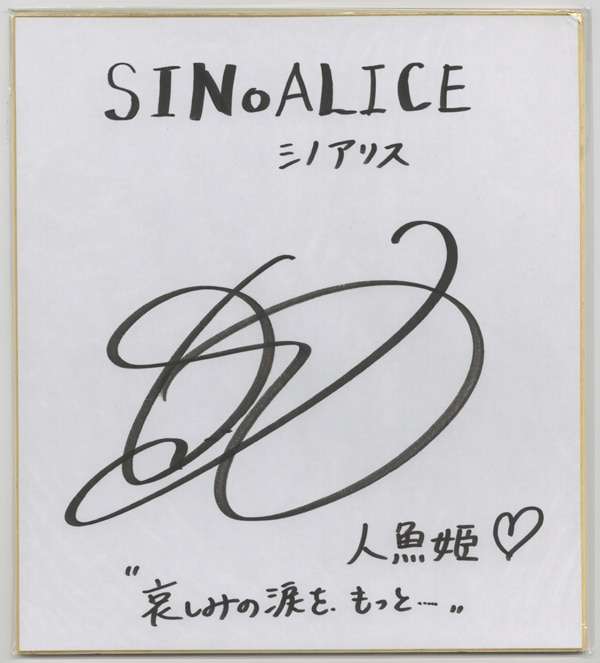 SINoALICE
シノアリス
人魚姫♡
"哀しみの涙を、もっと…„